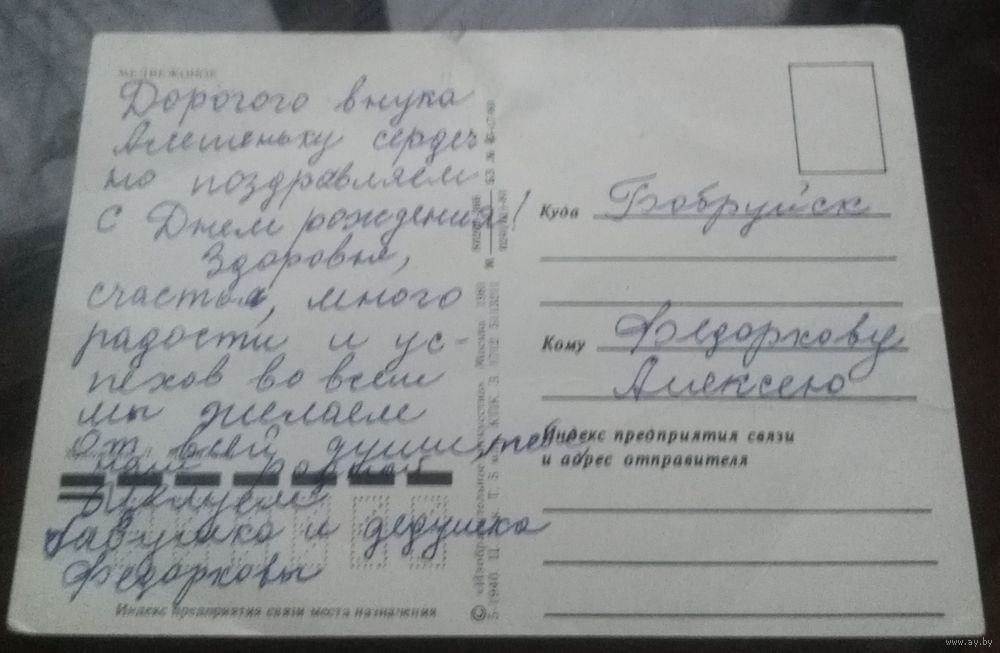 МЕДВЕЖОНОК
Дорогого внука
Алешеньку сердеч
но поздравляем
с Днем рождения!
Здоровья,
счастья, много
радости и ус-
пехов во всем
мы желаем
от всей души, тебе
наш родной
Целуем
бабушка и дедушка
Федорковы
Индекс предприятия связи места назначения
© «Изобразительное искусство». Москва. 1981
Куда Бобруйск
Кому Федоркову
Алексею
Индекс предприятия связи
и адрес отправителя
www.ay.by